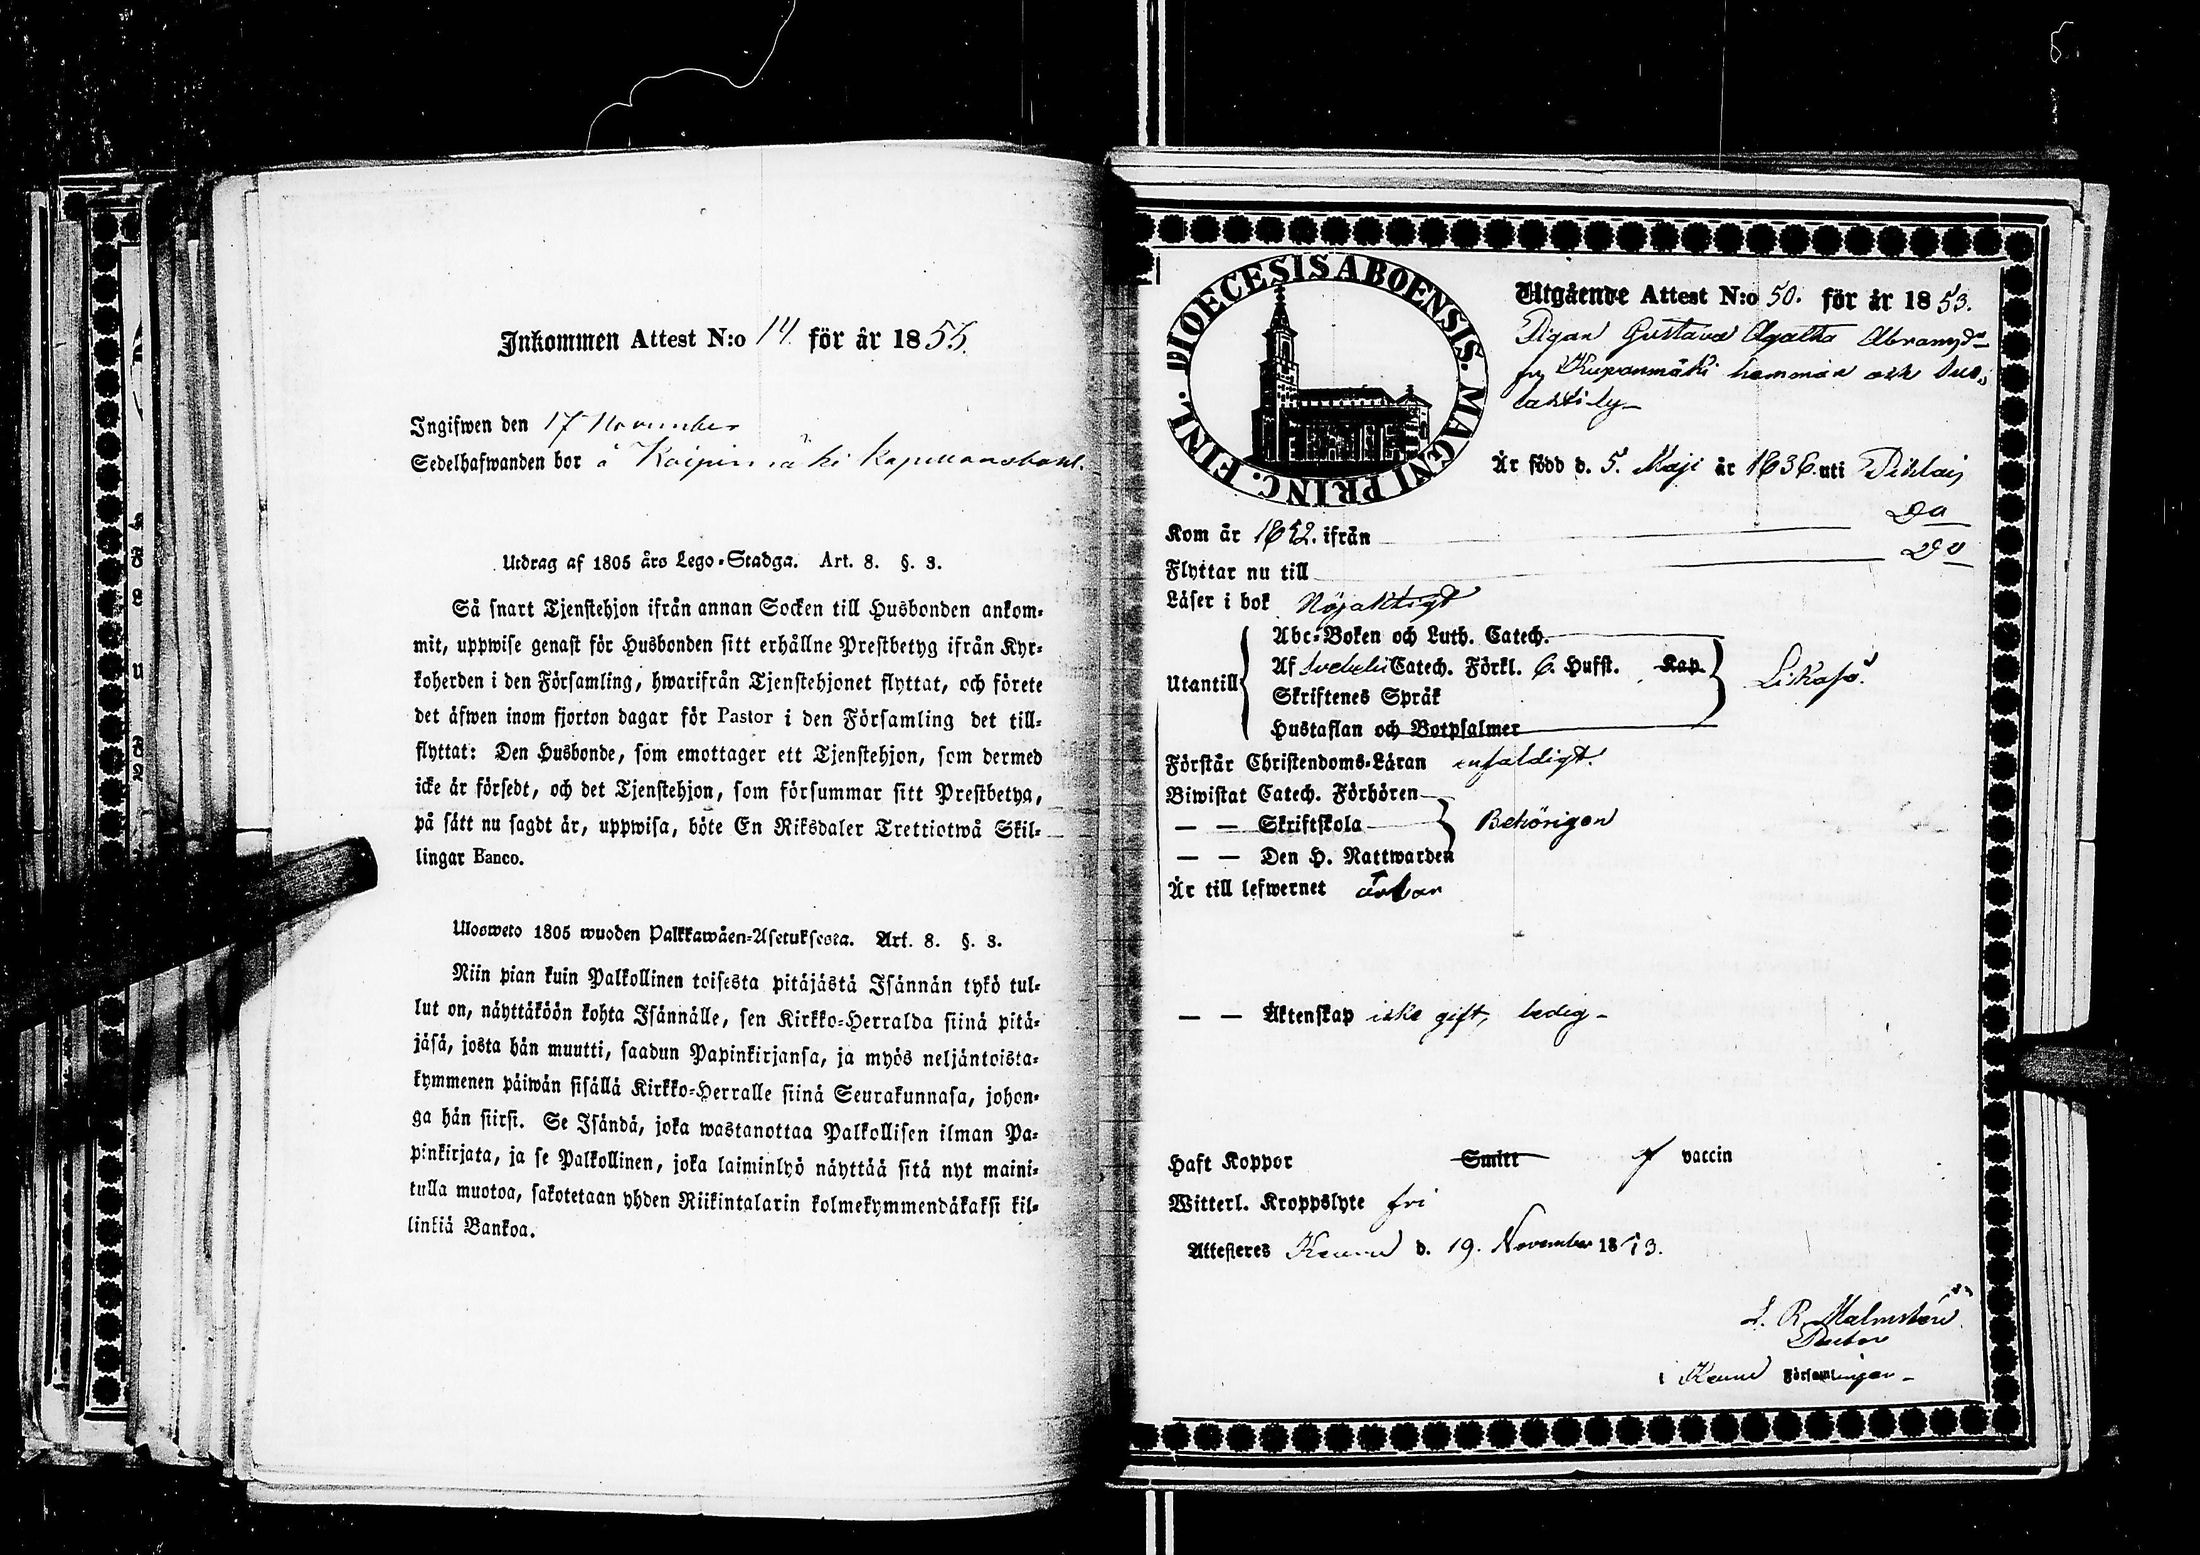 Inkommen Attest N:o 14. för år 1855.
Ingifwen den 17 November
Sedelhafwanden bor å Kaipinmäki Kapellansbohl.
Utdrag af 1805 års Lego-Stadga. Art. 8. §. 3.
Så snart Tjenstehjon ifrån annan Socken till Husbonden ankom-
mit, uppwise genast för Husbonden sitt erhållne Prestbetyg ifrån Kyr-
koherden i den Församling, hwarifrån Tjenstehjonet flyttat, och förete
det äfwen inom fjorton dagar för Pastor i den Församling det till-
flyttat: Den Husbonde, som emottager ett Tjenstehjon, som dermed
icke är försedt, och det Tjenstehjon, som försummar sitt Prestbetyg,
på sätt nu sagdt är, uppwisa, böte En Riksdaler Trettiotwå Skil-
lingar Banco.
Ulosweto 1805 wuoden Palkkawäen-Asetuksesta. Art. 8. §. 3.
Niin pian kuin Palkollinen toisesta pitäjästä Isännän tykö tul-
lut on, näyttäköön kohta Isännälle, sen Kirkko-Herralda siinä pitä-
jäsä, josta hän muutti, saadun Papinkirjansa, ja myös neljäntoista-
kymmenen päiwän sisällä Kirkko-Herralle siinä Seurakunnasa, johon-
ga hän siirsi. Se Isändä, joka wastanottaa Palkollisen ilman Pa-
pinkirjata, ja se Palkollinen, joka laiminlyö näyttää sitä nyt maini-
tulla muotoa, sakotetaan yhden Riikintalarin kolmekymmendäkaksi kil-
linkiä Bankoa.
DIOECESIS ABOENSIS. MAGNI PRINC. FINL.
Utgående Attest N:o 50. för år 1853.
Pigan Gustava Agatha Abramsdr
fr Kupanmäki hemman och Suo-
lahti by
Är född d. 5. Maji år 1836. uti Pihlais
Kom år 1852. ifrån Do
Flyttar nu till Do
Läser i bok Nöjaktigt
Abc-Boken och Luth. Catech.
Utantill Af Svebelii Catech. Förkl. 6. Hufst. Kap. Likaså.
Skriftenes Språk
Hustaflan och Botpsalmer
Förstår Christendoms-Läran enfaldigt.
Biwistat Catech. Förhören
— — Skriftskola Behörigen
— — Den H. Nattwarden
Är till lefwernet ärbar
— — Äktenskap icke gift, ledig
Haft Koppor Smitt af vaccin
Witterl. Kroppslyte fri
Attesteres d. 19. November 1853.
R. Malmstén
Pastor
i Församlingen